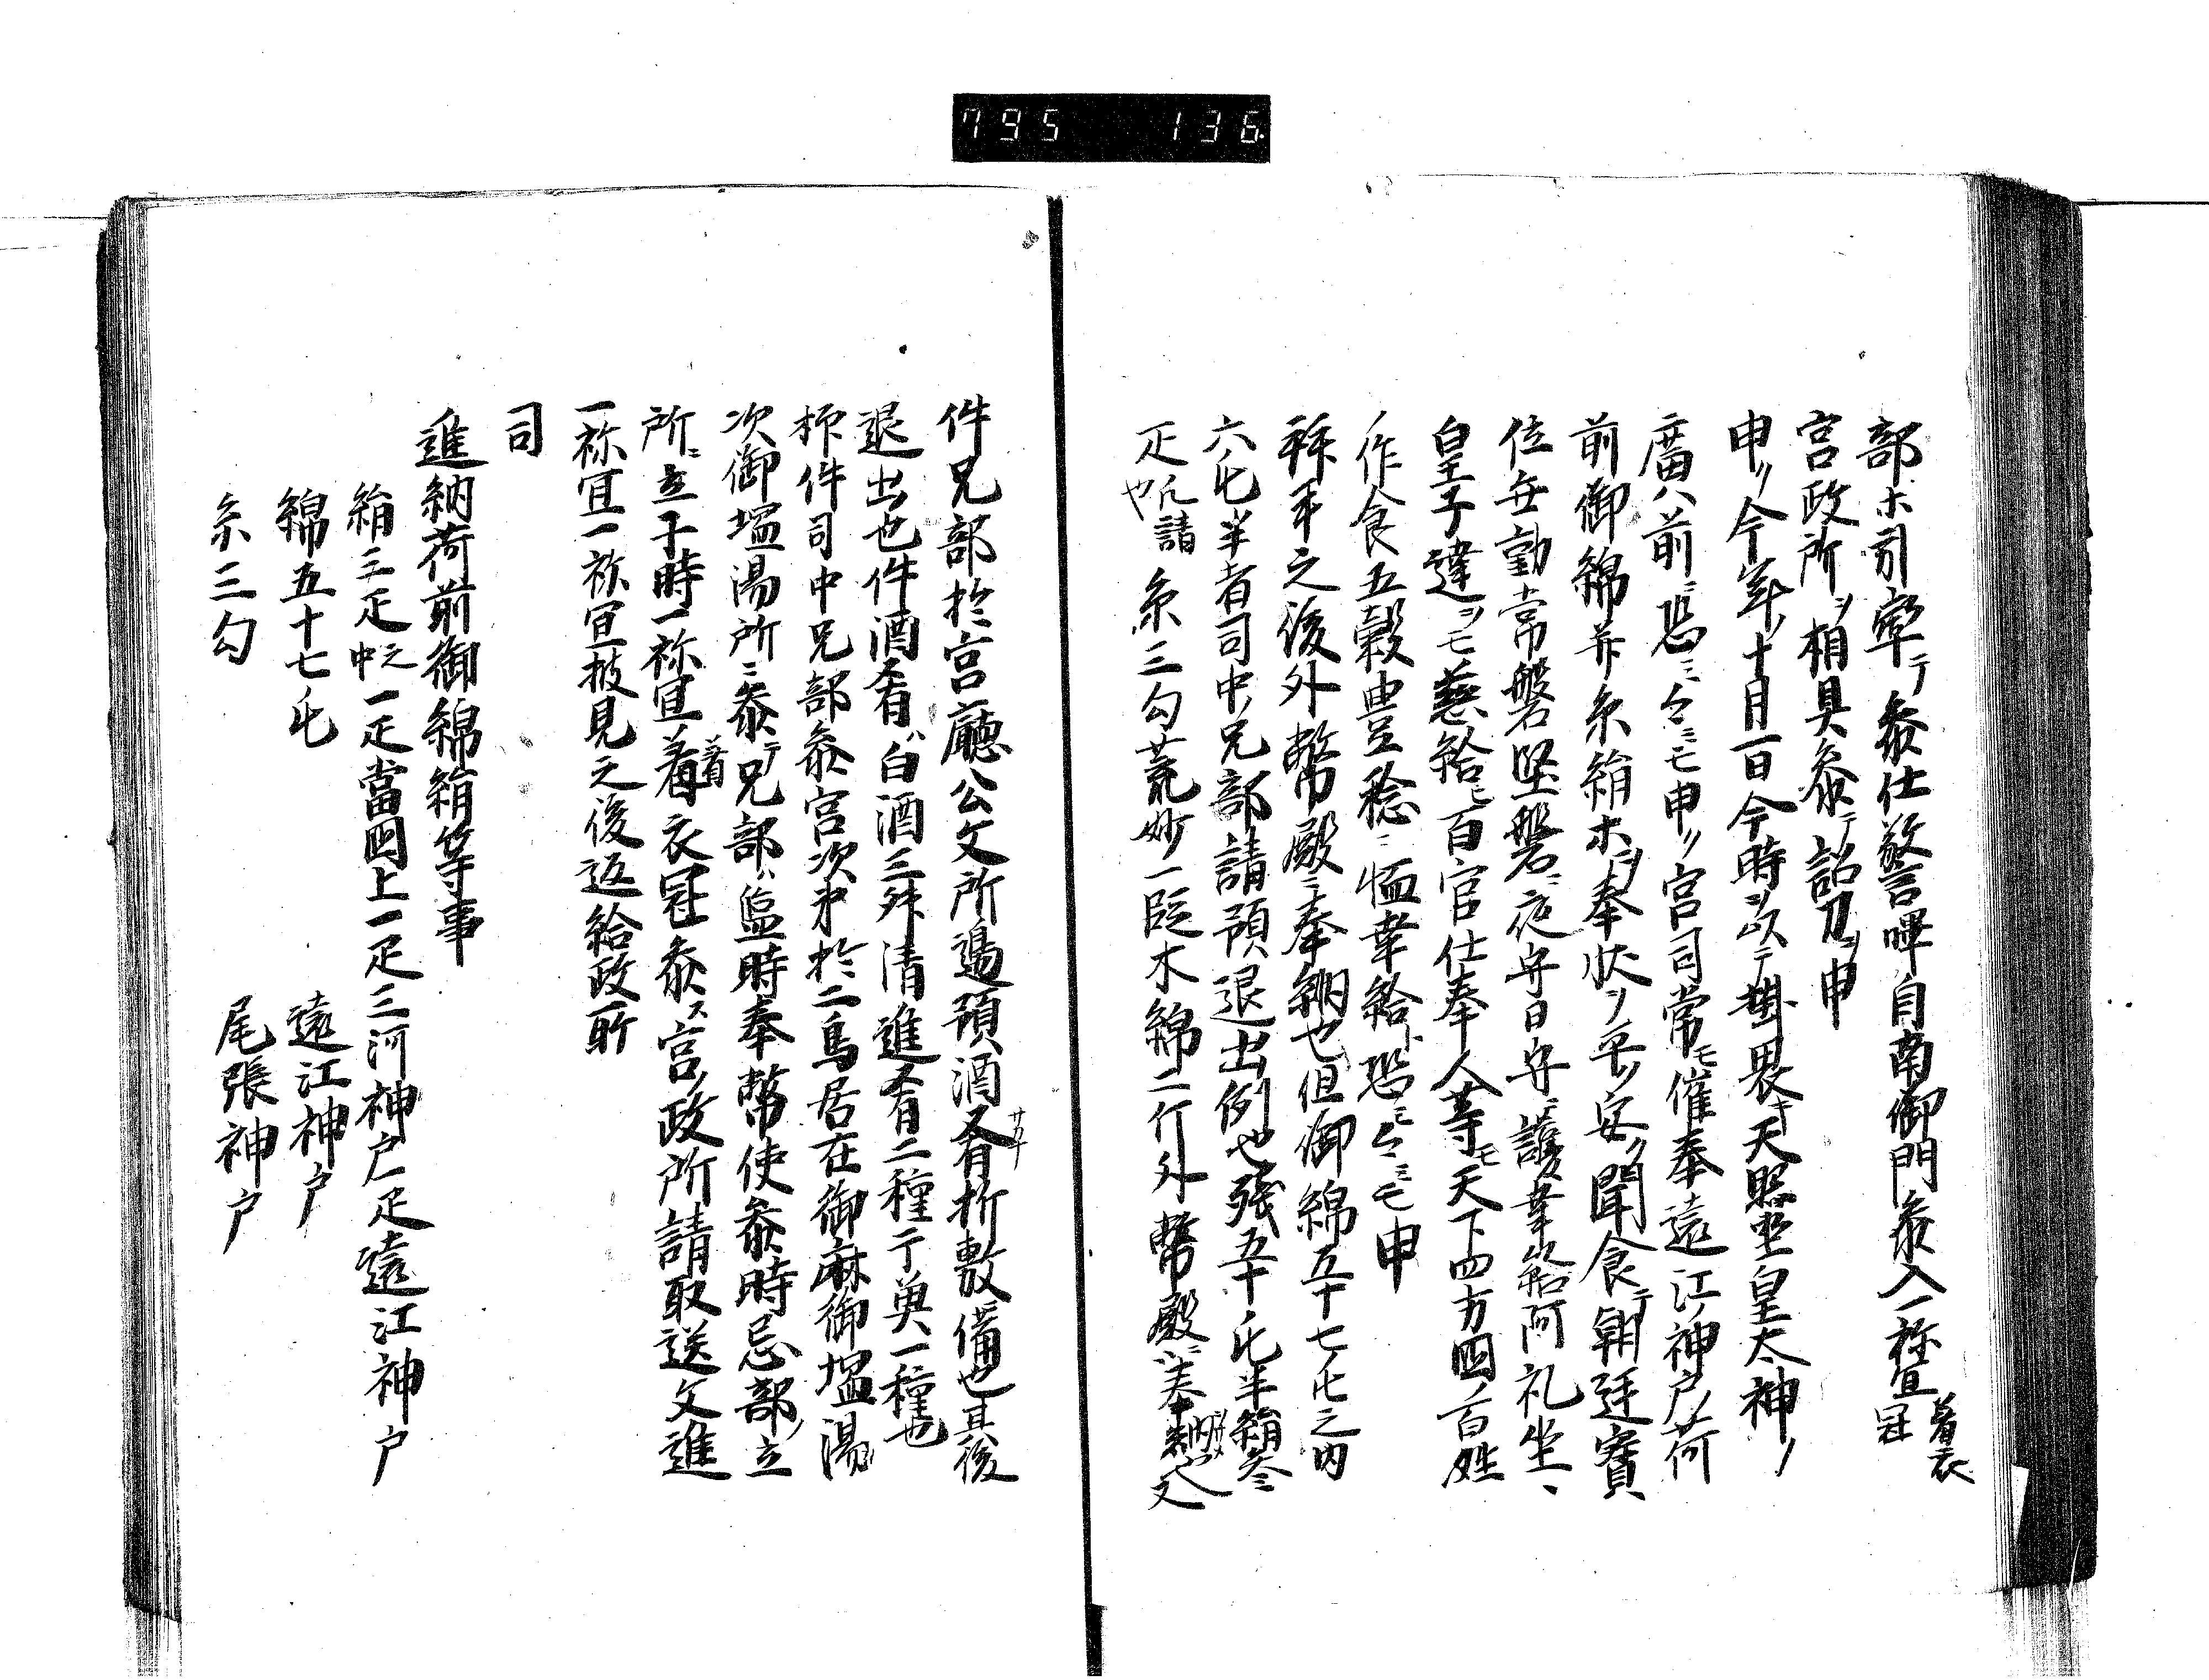 795 136
部ホ引率テ叅仕警蹕自南御門叅入一祢宜着衣冠
宮政所ヲ相具叅テ詔刀ヲ申
申ク今年ノ十月一日今時ヲ以テ掛畏キ天照坐皇太神ノ
廣八前ニ恐ミ々ミモ申ク宮司常モ催奉遠江ノ神戸ノ荷
前御綿并糸絹ホヲ奉状ヲ平ク安ク聞食テ朝廷寳
位無動常磐堅磐ニ夜守日守ニ護幸給阿礼坐、
皇子達ヲモ慈給ヒ百官仕奉人等モ天下四方国ノ百姓
作食五穀豊稔ニ恤幸給ト恐ミ々ミモ申
拜手之後外幣殿ニ奉納也但御綿五十七屯之内
六屯半者司中ノ兄部請預退出例也残五十屯半絹叁
疋也凡請糸三勾荒妙一段木綿二斤外幣殿ニ奉納也又
件兄部於宮廳公文所邊預酒肴折敷備也其後
退出也件酒肴ハ白酒三舛清進肴二種 奠一種也
抑件司中兄部叅宮次第於二鳥居在御麻御塩湯
次御塩湯所ニ叅テ兄部ハ塩時奉幣使叅時忌部ノ立
所ニ立于時一祢宜着衣冠叅ス宮ノ政所請取送文進
一祢宜一祢宜披見之後返給政所
司
進納荷前御綿絹等事
絹三疋之中一疋當国上一疋三河神戸一疋遠江神戸
綿五十七屯 遠江神戸
糸三勾 尾張神戸